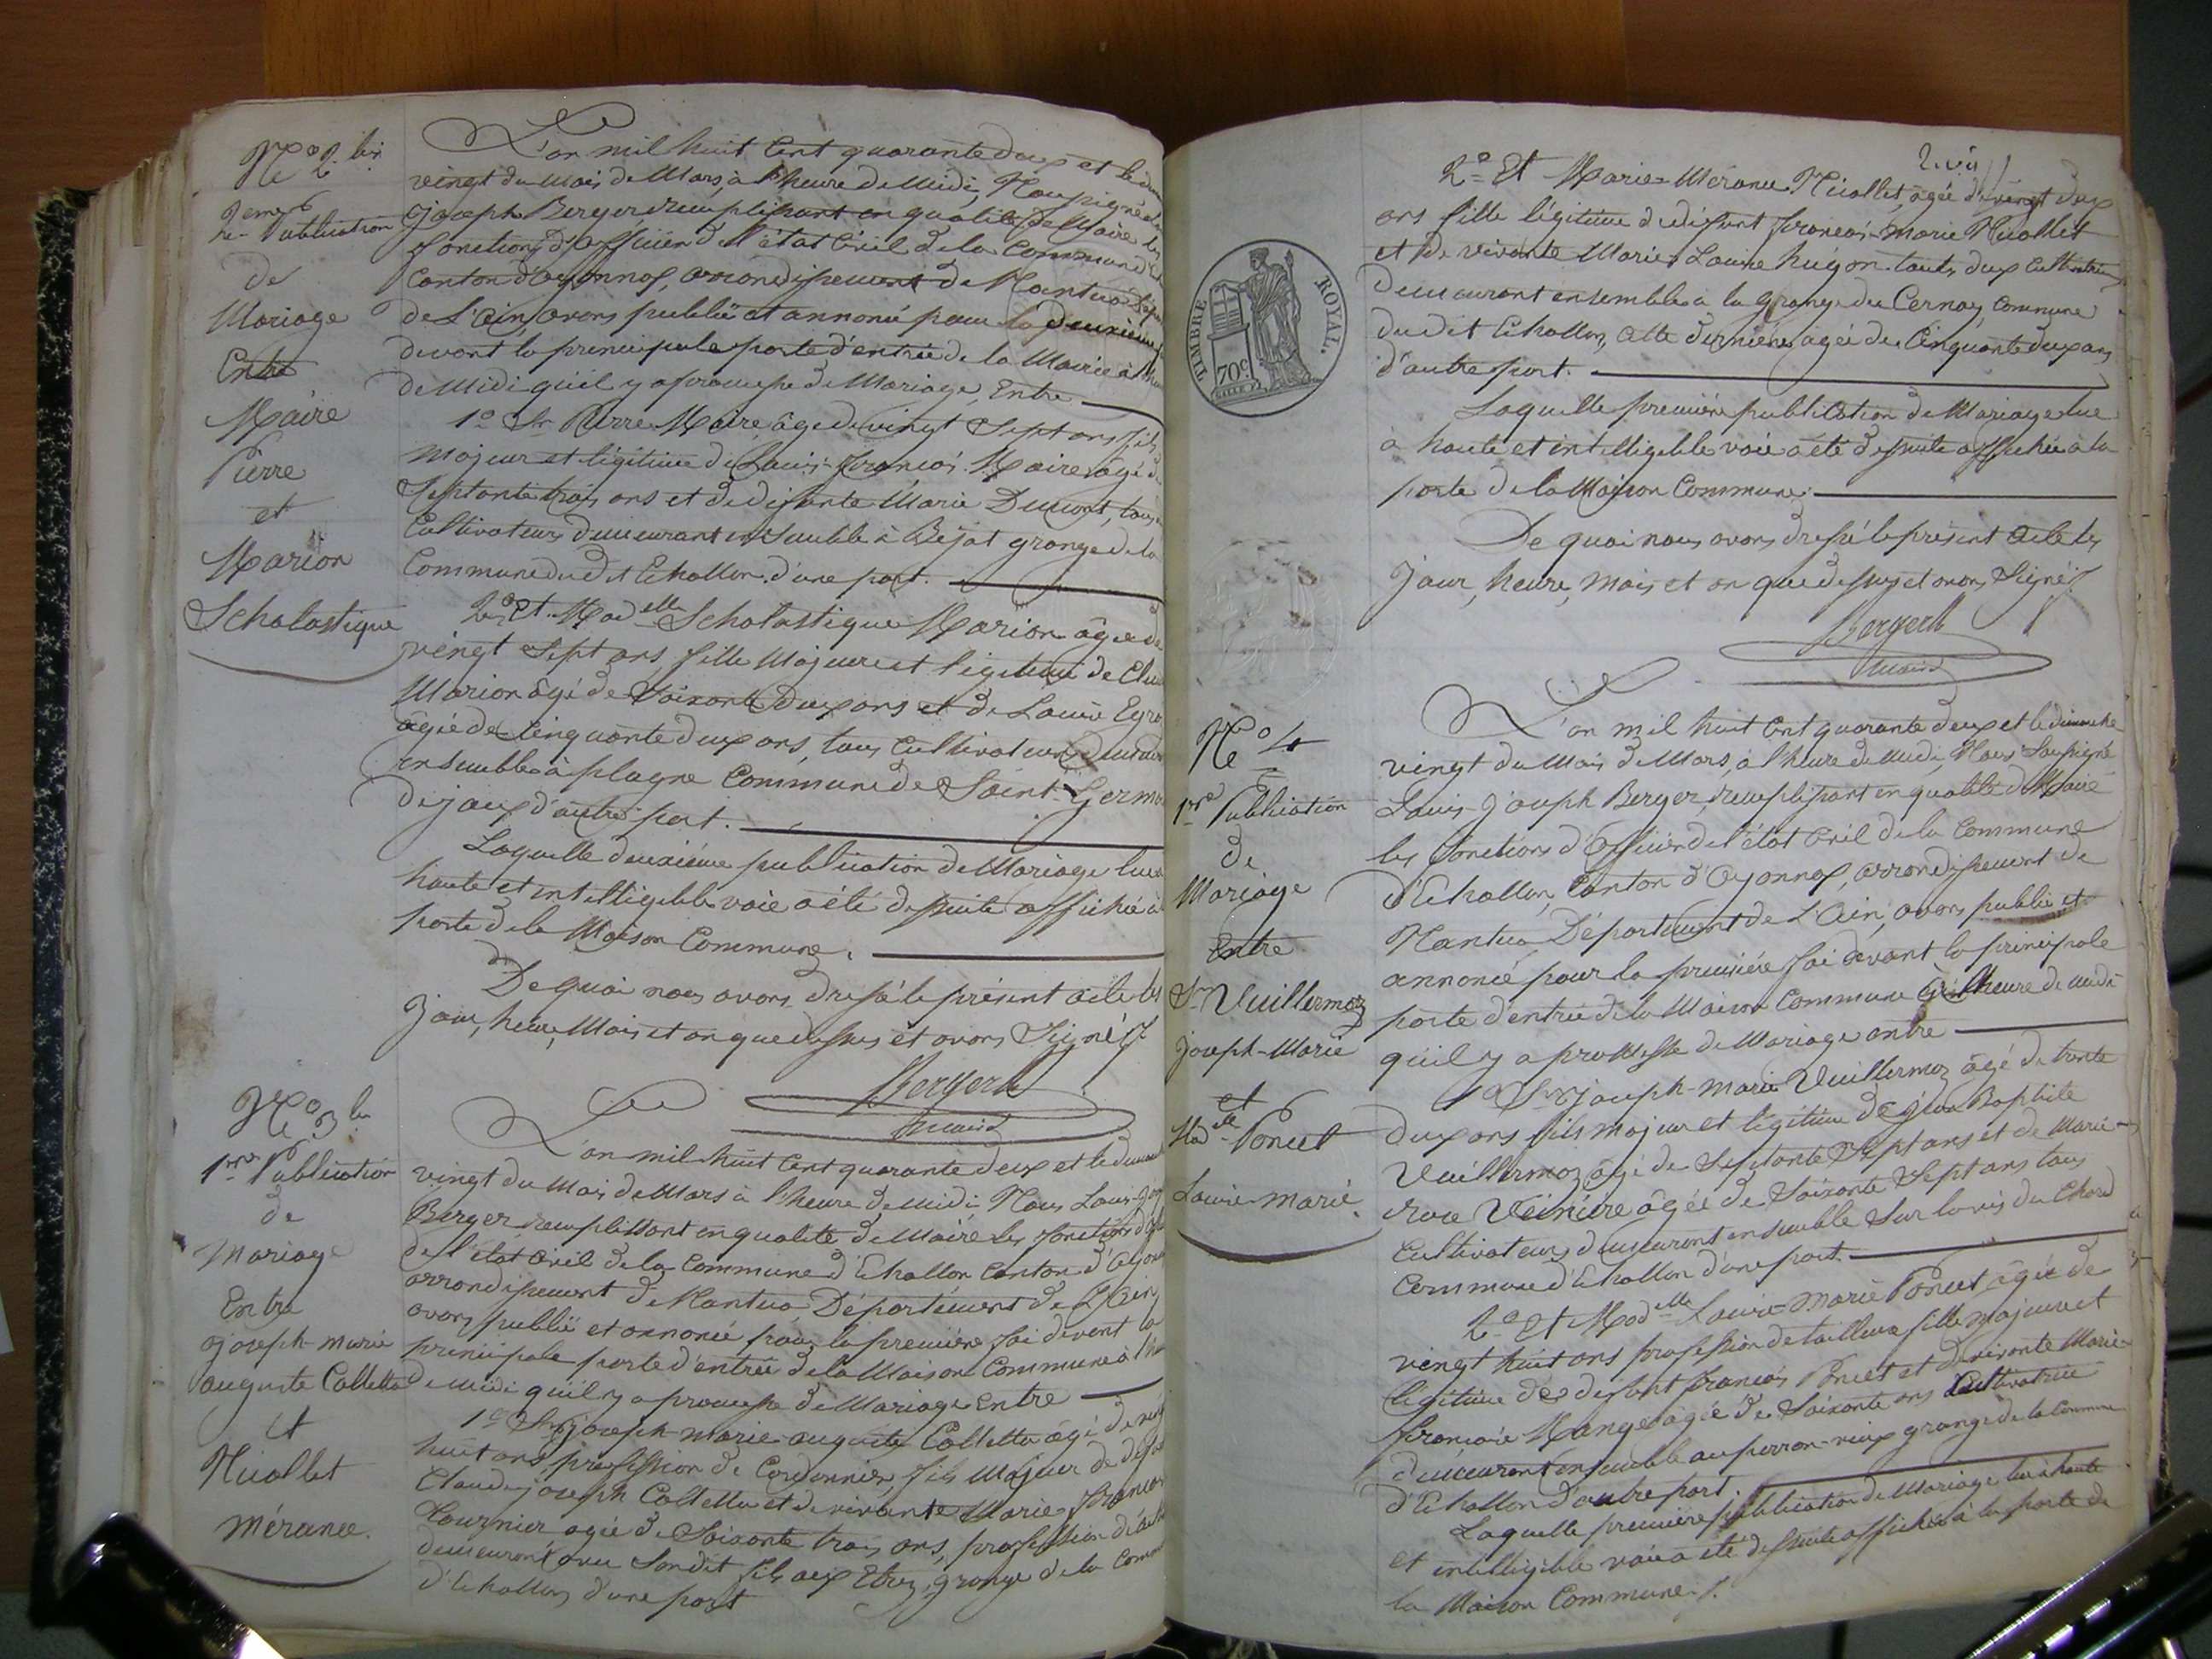 N° 2 bis
2eme Publication
de
Mariage
Entre
Maire
Pierre
et
Marion
Scholastique
L'an mil huit Cent quarante deux et le
vingt du Mois de Mars, à l'heure de Midi, Nous
Joseph Berger remplissant en qualité de Maire les
fonctions d'officier de l'état Civil de la Commune
Canton d'Oyonnax, arrondissement de Nantua
de L'Ain, avons publié et annoncé pour la deuxième
devant la principale porte d'entrée de la Mairie à
de Midi qu'il y a promesse de Mariage, Entre
1° Sr Pierre Maire, âgé de vingt Sept ans fils
Majeur et légitime de Louis-françois Maire âgé de
Septante trois ans et de défunte Marie Dumont, tous
Cultivateurs demeurant ensemble à Béjat grange de la
Commune du dit Echallon d'une part.
2° Et Madelle Scholastique Marion âgée de
vingt Sept ans, fille Majeure et légitime de
Marion âgé de Soixante deux ans et de Louise
âgée de Cinquante deux ans, tous Cultivateurs
ensemble à plagne Commune de Saint-Germ
de joux d'autre part.
Laquelle deuxième publication de Mariage lue
haute et intelligible voie a été de suite affichée à
porte de la Maison Commune.
De quoi nous avons dressé le présent acte les
Jour, heure, Mois et an que dessus et avons Signé
Berger
N° 3
1ère Publication
de
Mariage
Entre
joseph-marie
auguste Colletta
et
Nicollet
mérance.
L'an mil huit Cent quarante deux et le
vingt du Mois de Mars à l'heure de Midi Nous Louis-
Berger remplissant en qualité de Maire les fonctions
de l'état Civil de la Commune d'Echallon Canton d'
arrondissement de Nantua Département de L'Ain,
avons publié et annoncé pour la première foi devant la
principale porte d'entrée de la Maison Commune à
de Midi qu'il y a promesse de Mariage Entre
1° Sr joseph-marie-auguste Colletta âgé de
huit ans, profession de Cordonnier, fils Majeur de
Claude-joseph Colletta et de vivante Marie
Tournier âgée de Soixante trois ans, profession
demeurant avec Son dit fils aux Etrez, grange de la
d'Echallon, d'une part
2° Et Marie-Mérance Nicollet, âgée de vingt deux
ans fille légitime de défunt françois-marie Nicollet
et de vivante Marie Louise hugon, touts deux
demeurant ensemble à la grange du Cernay, Commune
du dit Echallon, cette dernière âgée de Cinquante deux ans
d'autre part.
Laquelle première publication de Mariage lue
à haute et intelligible voie a été de suite affichée à la
porte de la Maison Commune.
De quoi nous avons dressé le présent acte les
Jour, heure, Mois et an que dessus et avons Signé
Berger
TIMBRE ROYAL.
70c
N° 4
1ère Publication
de
Mariage
Entre
Sr Vuillermoz
joseph-Marie
et
Madelle Poncet
Louise-marie.
L'an mil huit Cent quarante deux et le dimanche
vingt du Mois de Mars, à l'heure de Midi, Nous Soussigné
Louis-Joseph Berger, remplissant en qualité de Maire
les fonctions d'officier de l'état Civil de la Commune
d'Echallon, Canton d'Oyonnax, arrondissement de
Nantua Département de L'Ain, avons publié et
annoncé pour la première foi devant la principale
porte d'entrée de la Maison Commune à l'heure de midi
qu'il y a promesse de Mariage entre
1° Sr joseph-marie Vuillermoz âgé de trente
deux ans fils majeur et légitime de jean Baptiste
Vuillermoz âgé de Septante Sept ans et de Marie-
âgée de Soixante Sept ans tous
Cultivateurs demeurant ensemble Sur
Commune d'Echallon d'une part.
2° Et Madelle Louise-Marie Poncet âgée de
vingt huit ans profession de tailleuse fille majeure et
légitime de défunt françois Poncet et de vivante Marie-
françoise Mange âgée de Soixante ans Cultivatrice
demeurant ensemble au perron-vieux grange de la Commune
d'Echallon d'autre part.
Laquelle première publication de Mariage lue à haute
et intelligible voie a été de suite affichée à la porte de
la Maison Commune.